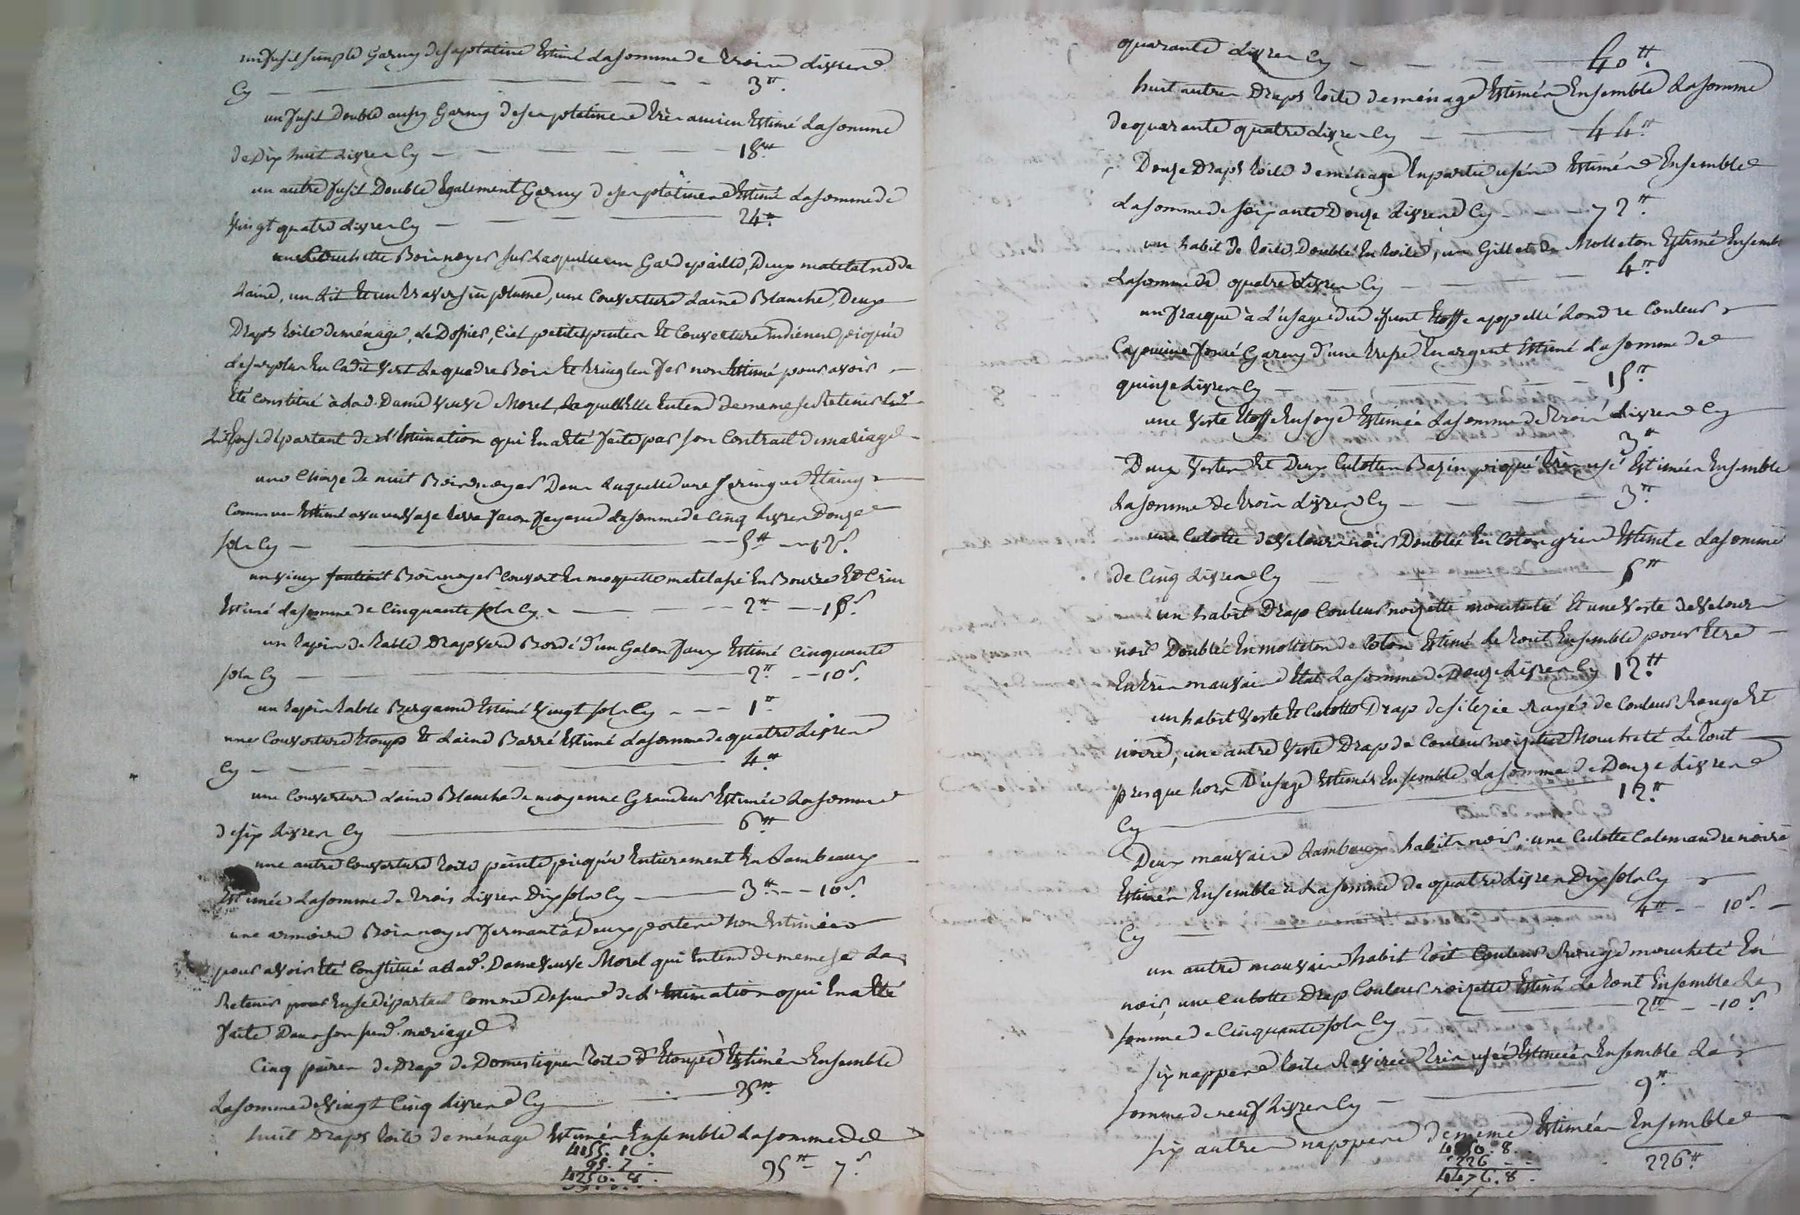 un fusil simple Garny de sa platine Estimé la somme de trois Livres
Cy 3tt.
un fusil Double aussy Garny de ses platines très ancien Estimé la somme
de Dix huit Livres Cy 18tt
un autre fusil Double Egalement Garny de ses platines Estimé la somme de
vingt quatre Livres Cy 24tt
une Couchette Bois noyer sur laquelle un Gardepaille, Deux matelats de
Laine, un Lit Et un traversin plume, une Couverture Laine Blanche, Deux
Draps toile deménage, Le Dossier, Ciel petites pentes Et Couverture indienne piquée
Les en Cadit vert Le quadre Bois Et tringles fer non Estimé pour avoir
Eté Constitué à Lad. Dame veuve Morel, Laquelle Elle Entend de meme se Retenir
Et se départant de L'Estimation qui En a Eté faite par son Contrat de mariage
une Chaize de nuit Bois noyer Dans Laquelle une seringue Etaing
Commun Estimé avec un vaze terre facon fayence La somme de Cinq Livres Douze
sols Cy 5tt 12s.
un vieux fauteuil Bois noyer Couvert En moquette matelassé En Bourre Et Crin
Estimé La somme de Cinquante sols Cy 2tt 10s.
un tapis de table Drap verd Bordé d'un Galon faux Estimé Cinquante
sols Cy 2tt 10s.
un tapis table Bergame Estimé vingt sols Cy 1tt
une Couverture Etoupe Et Laine Barré Estimé La somme de quatre Livres
Cy 4tt
une Couverture Laine Blanche de moyenne Grandeur Estimée La somme
de six Livres Cy 6tt
une autre Couverture toile peinte piquée Entierement En Lambeaux
Estimée La somme de trois Livres Dix sols Cy 3tt 10s.
une armoire Bois noyer fermant à Deux portes non Estimée
pour avoir Eté Constitué a Lad. Dame veuve Morel qui Entend de meme se La
Retenir pour En se départant Comme Dessus de L'Estimation qui En a Eté
faite Dans son susd. mariage
Cinq paires de Drap de Domestiques toile d'Etoupe Estimés Ensemble
La somme de vingt Cinq Livres Cy 25tt
huit Draps toile de ménage Estimés Ensemble La somme de
4155. 1.
95. 7.
4250. 8.
95tt 7s
quarante Livres Cy 40tt.
huit autres Draps toile de ménage Estimés Ensemble La somme
de quarante quatre Livres Cy 44tt.
Douze Draps toile de ménage En partie usés Estimés Ensemble
La somme de soixante Douze Livres Cy 72tt.
un habit de toile Doublé En toile, un Gillet de Molleton Estimé Ensemble
La somme de quatre Livres Cy 4tt.
un fracque à L'usage du défunt Etoffe appellé Londre Couleur
Capucine foncé Garny d'une En argent Estimé La somme de
quinze Livres Cy 15tt.
une veste Etoffe En soye Estimée La somme de trois Livres Cy
3tt
Deux vestes Et Deux Culottes Bazin piqué très usé Estimées Ensemble
La somme de trois Livres Cy 3tt
une Culotte de velour noir Doublée En Coton gris Estimée La somme
de Cinq Livres Cy 5tt
un habit Drap Couleur noizette moucheté Et une veste de velour
noir Doublée En molleton de Coton Estimé Le tout Ensemble pour Etre
En très mauvais Etat La somme de Douze Livres Cy 12tt.
un habit veste Et Culotte Drap de silezie Rayés de Couleur Rouge Et
noire, une autre veste Drap de Couleur noizette Moucheté Le tout
presque hors D'usage Estimés Ensemble La somme de Douze Livres
Cy 12tt.
Deux mauvais Lambeaux habits noir, une Culotte Calemandre noire
Estimés Ensemble a La somme de quatre Livres Dix sols Cy
Cy 4tt 10s.
un autre mauvais habit Couleur Rouge moucheté En
noir, une Culotte Drap Couleur noizette Estimé Le tout Ensemble La
somme de Cinquante sols Cy 2tt 10s
six nappes toile très usé Estimées Ensemble La
somme de neuf Livres Cy 9tt.
six autres nappes de meme Estimées Ensemble
4250. 8.
226
4476. 8.
226tt